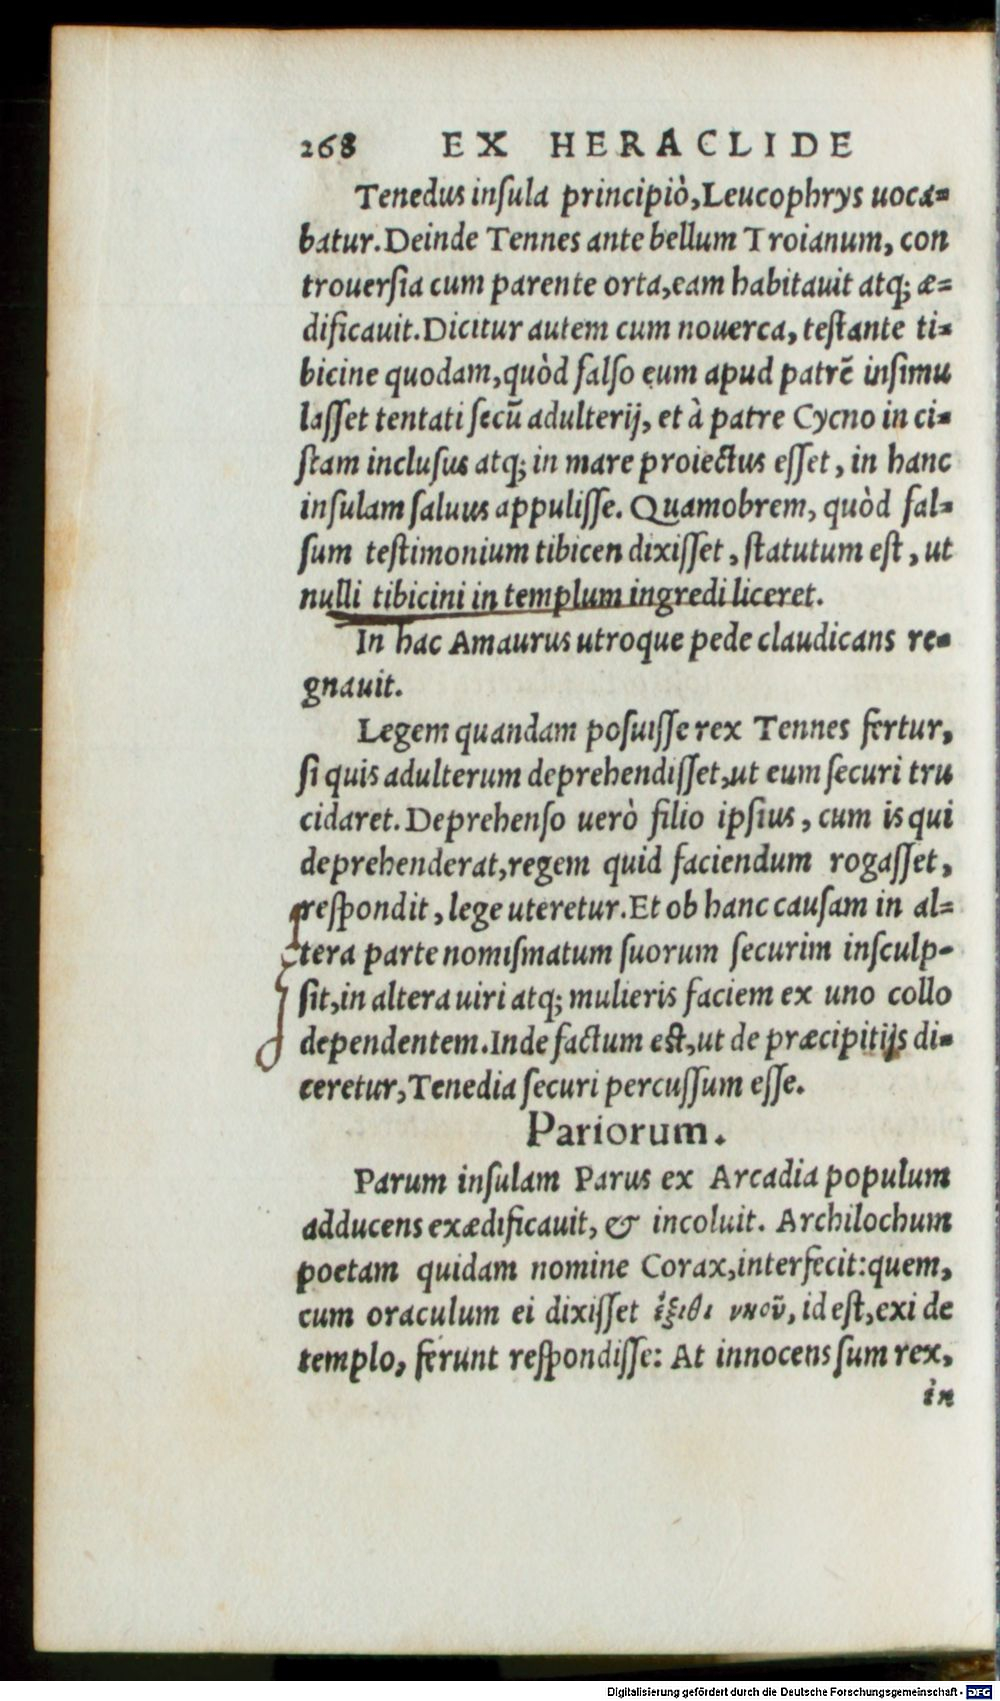 268 EX HERACLIDE
Tenedus inſula principiò, Leucophrys uoca=
batur. Deinde Tennes ante bellum Troianum, con
trouerſia cum parente orta, eam habitauit atq; æ=
dificauit. Dicitur autem cum nouerca, teſtante ti=
bicine quodam, quòd falſo eum apud patrē inſimu
laſſet tentati ſecū adulterij, et à patre Cycno in ci=
ſtam inclusus atq; in mare proiectus eſſet, in hanc
inſulam ſaluus appuliſſe. Quamobrem, quòd fal=
ſum teſtimonium tibicen dixiſſet, ſtatutum eſt, ut
nulli tibicini in templum ingredi liceret.
In hac Amaurus utroque pede claudicans re=
gnauit.
Legem quandam poſuiſſe rex Tennes fertur,
ſi quis adulterum deprehendiſſet, ut eum ſecuri tru
cidaret. Deprehenſo uerò filio ipſius, cum is qui
deprehenderat, regem quid faciendum rogaſſet,
reſpondit, lege uteretur. Et ob hanc cauſam in al=
tera parte nomiſmatum ſuorum ſecurim inſculp-
ſit, in altera uiri atq; mulieris faciem ex uno collo
dependentem. Inde factum eſt, ut de præcipitijs di=
ceretur, Tenedia ſecuri percuſſum eſſe.
Pariorum.
Parum inſulam Parus ex Arcadia populum
adducens exædificauit, & incoluit. Archilochum
poetam quidam nomine Corax, interfecit: quem,
cum oraculum ei dixiſſet ἔξιθι νηοῦ, id eſt, exi de
templo, ferunt reſpondiſſe: At innocens ſum rex,
in
Digitalisierung gefördert durch die Deutsche Forschungsgemeinschaft - DFG